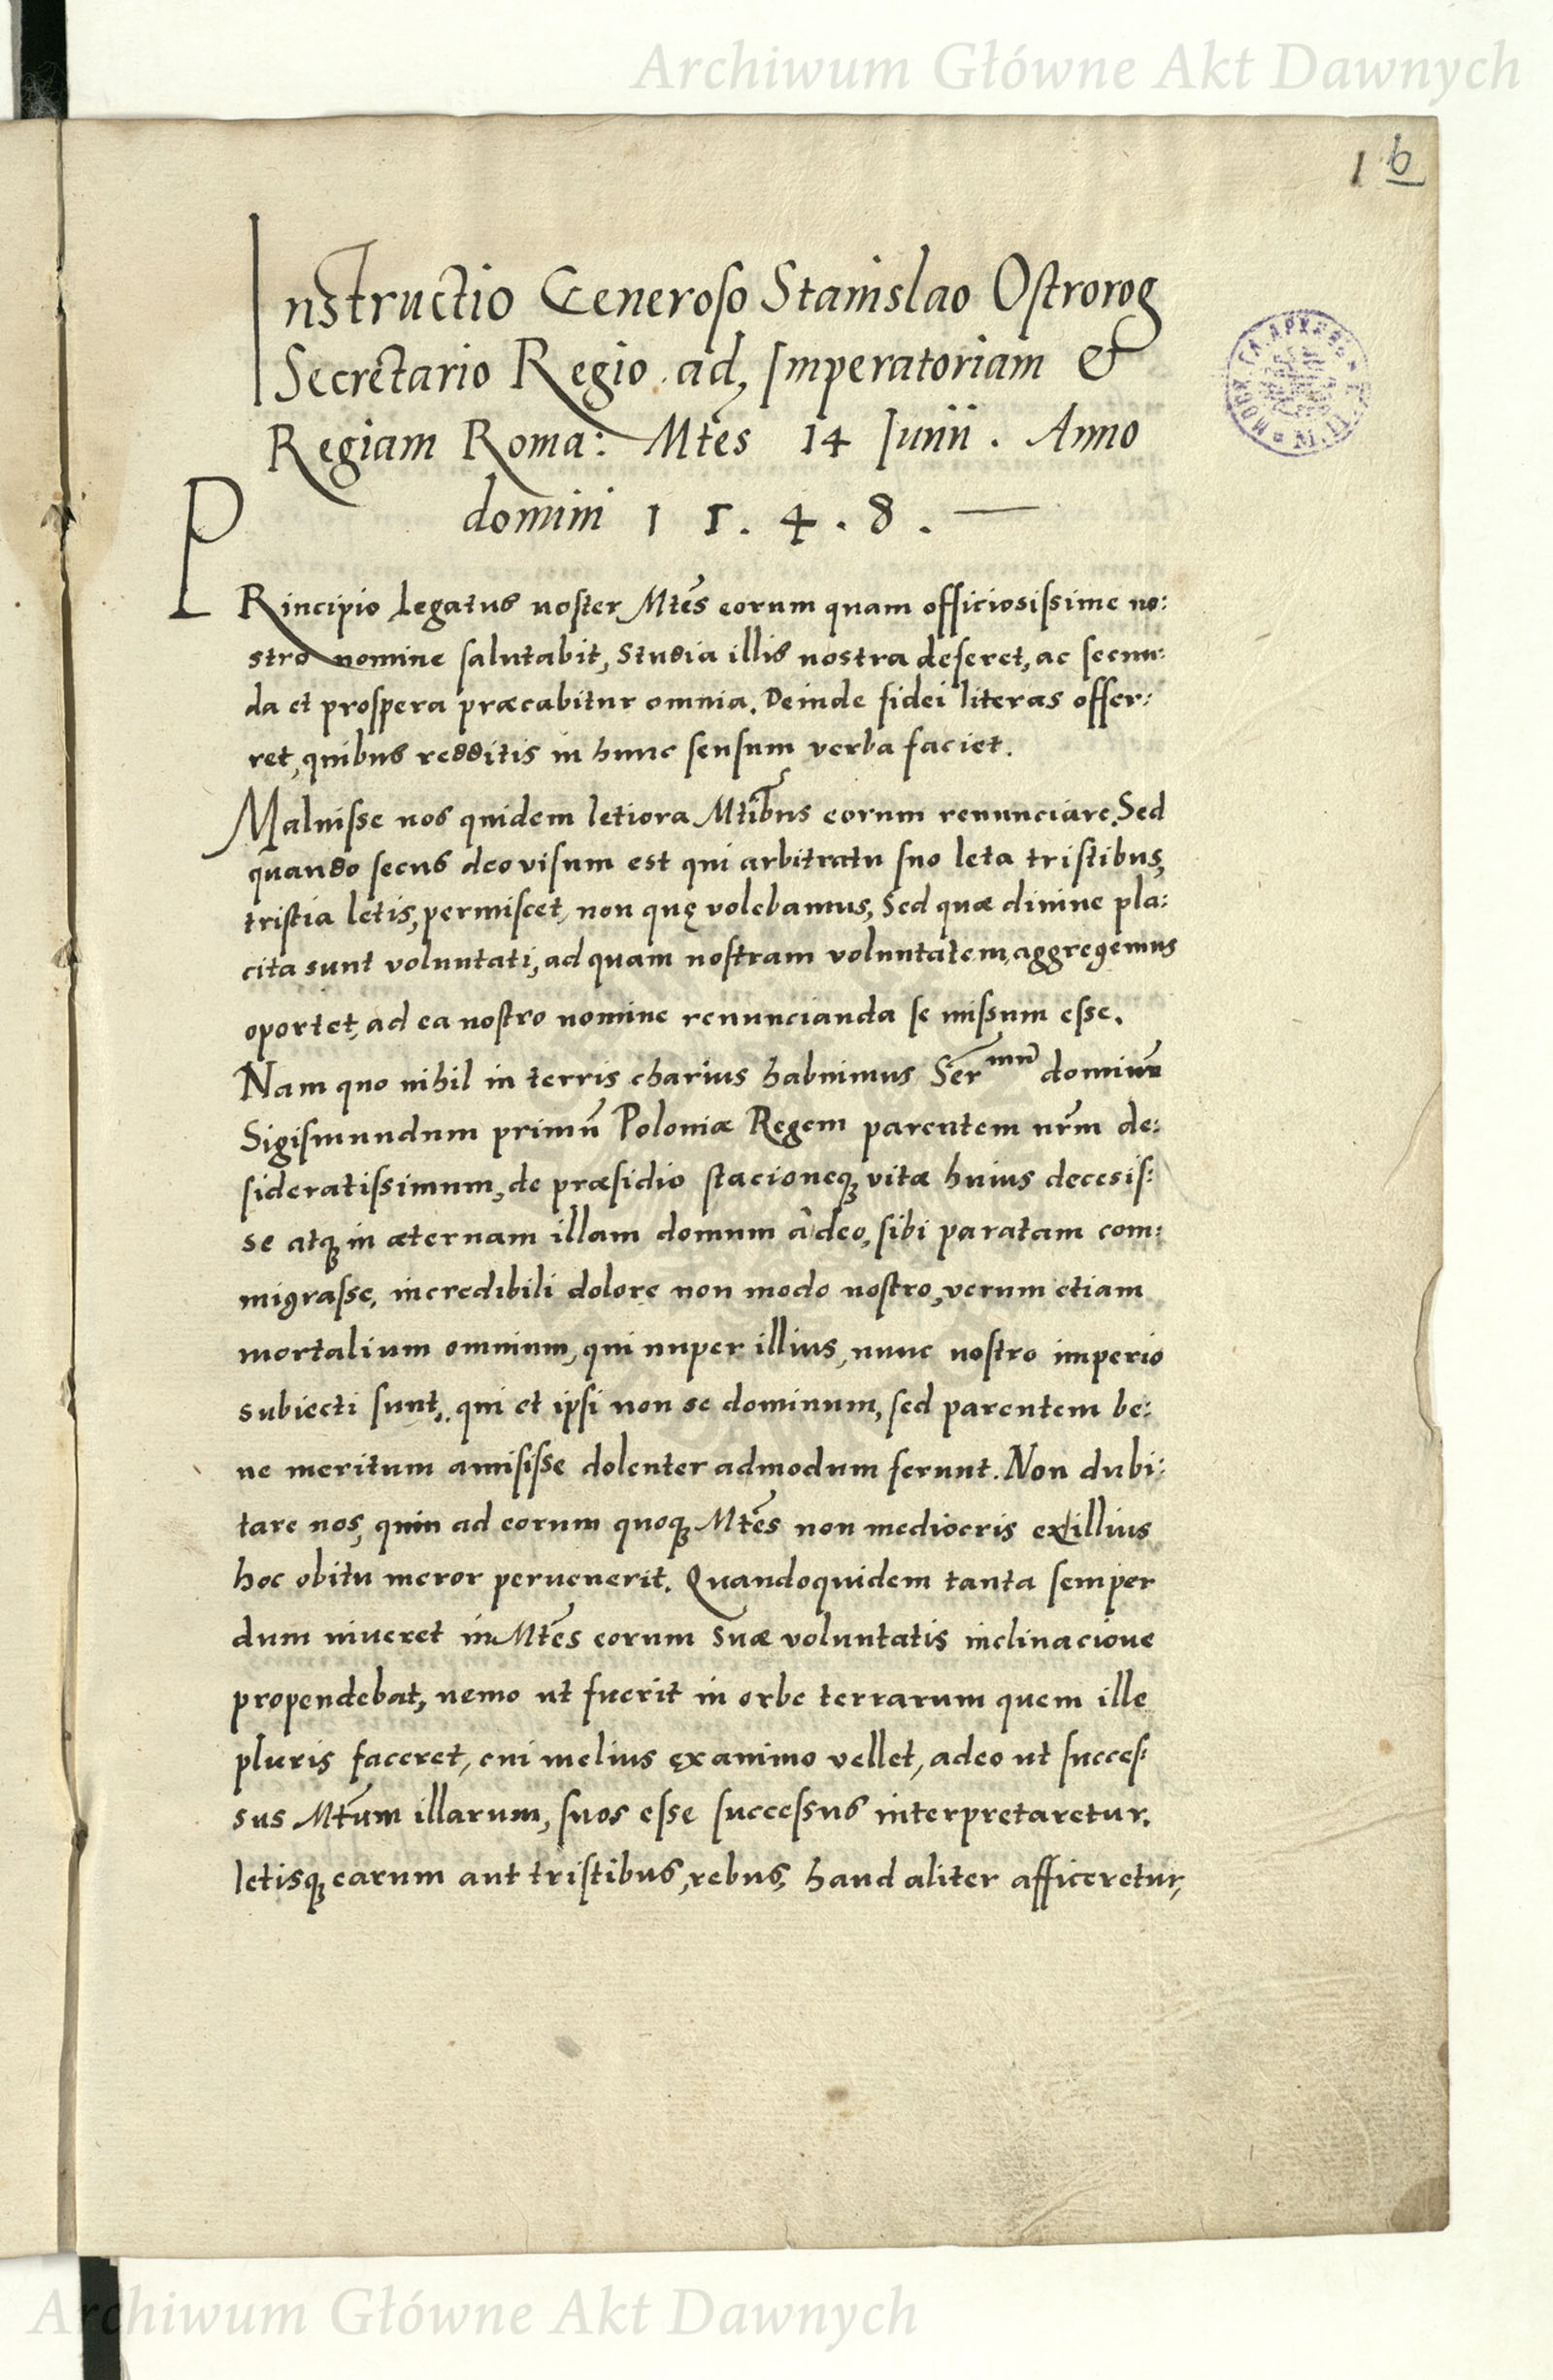 Archiwum Główne Akt Dawnych
1 6
Instructio Generoso Stanislao Ostrorog
Secretario Regio ad, Imperatoriam et
Regiam Roma: Mtes 14 Junii. Anno
domini 1 5. 4. 8.
PRincipio Legatus noster Mtēs eorum quam officiosissime no:
stro nomine salutabit, studia illis nostra deferet, ac secun:
da et prospera præcabitur omnia. Deinde fidei literas offer:
ret, quibus redditis in hunc sensum verba faciet.
Maluisse nos quidem letiora Mtibus eorum renunciare. Sed
quando secus deo visum est qui arbitratu suo leta tristibus,
tristia letis, permiscet, non quę volebamus, Sed quæ divine pla:
cita sunt voluntati, ad quam nostram voluntatem, aggregemus
oportet, ad ea nostro nomine renuncianda se missum esse.
Nam quo nihil in terris charius habuimus Ser^mū dominū
Sigismundum primū Poloniæ Regem parentem nr̄m de:
sideratissimum, de præsidio stacioneq; vitæ huius decesis:
se atq; in æternam illam domum â deo, sibi paratam com:
migrasse, incredibili dolore non modo nostro, verum etiam
mortalium omnium, qui nuper illius, nunc nostro imperio
subiecti sunt, qui et ipsi non se dominum, sed parentem be:
ne meritum amisisse dolenter admodum ferunt. Non dubi:
tare nos, quin ad eorum quoq; Mtēs non mediocris ex illius
hoc obitu meror pervenerit. Quandoquidem tanta semper
dum viveret in Mtēs eorum suæ voluntatis inclinacione
propendebat, nemo ut fuerit in orbe terrarum quem ille
pluris faceret, cui melius ex animo vellet, adeo ut succes:
sus Mtūm illarum, suos esse successus interpretaretur.
letisq; earum aut tristibus, rebus, haud aliter afficeretur,
Archiwum Główne Akt Dawnych